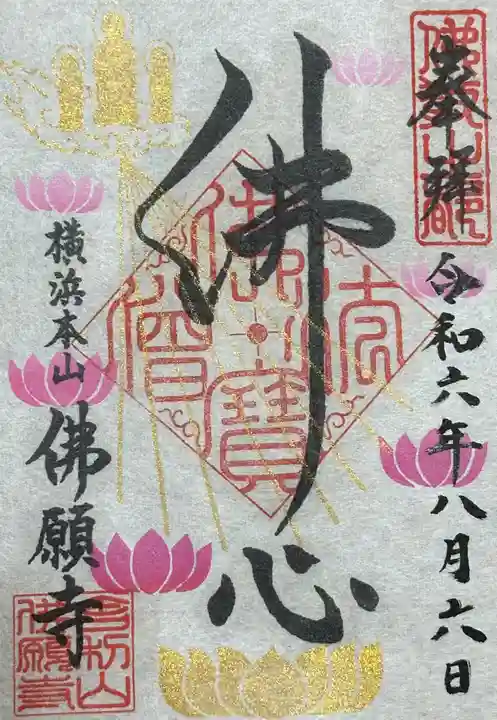 奉拝
令和六年八月六日
佛心
横浜本山
佛願寺
佛法僧寳